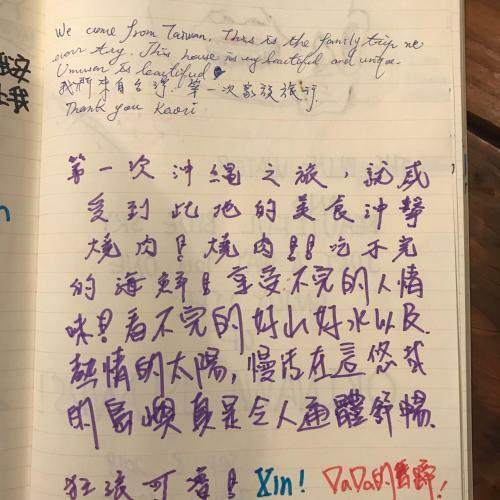 We come from Taiwan, This is the family trip we
ever try. This house is very beautiful and unique.
is beautiful
我們來自台灣，第一次家族旅行.
Thank you Kaori
第一次沖繩之旅，就感
受到此地的美食沖擊
燒肉!! 燒肉!!! 吃不完
的海鮮!! 享受不完的人情
味!! 看不完的好山好水以及
熱情的太陽，慢活在這悠哉
的島嶼真是令人通體舒暢.
可 !! Xin! DaDa的